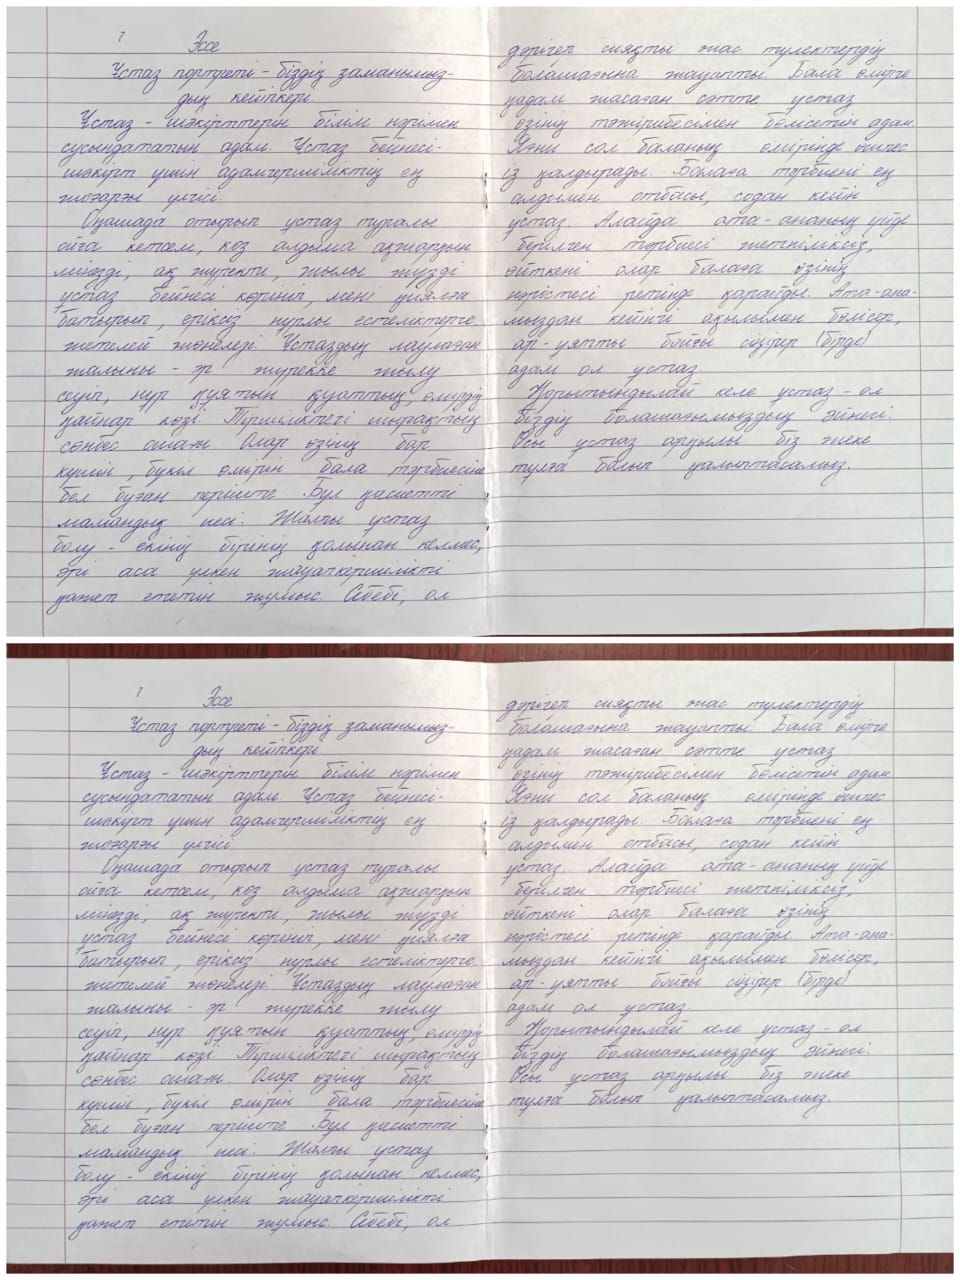 Эссе
Ұстаз портреті - біздің заманымыз-
дың кейіпкері.
Ұстаз - шәкірттерін білім нәрімен
сусындататын адам. Ұстаз бейнесі-
шәкірт үшін адамгершіліктің ең
жоғарғы үлгісі.
Оңашада отырып ұстаз туралы
ойға кетсем, көз алдыма ақжарқын
мінезді, ақ жүректі, жылы жүзді
ұстаз бейнесі көрініп, мені қиялға
батырып, еріксіз нұрлы естеліктерге
жетелей жөнеледі. Ұстаздың лаулаған
жалыны - әр жүрекке жылу
сеуіп, нұр құятын қуаттың, өмірдің
қайнар көзі. Тіршіліктегі шырақтың
сөнбес оты. Олар өзінің бар
күшін, бүкіл өмірін бала тәрбиесіне
бел буған періште. Бұл қасиетті
мамандық иесі. Жалпы ұстаз
болу - екінің бірінің қолынан келмес,
әрі аса үлкен жауапкершілікті
қажет ететін жұмыс. Себебі, ол
дәрігер сияқты жас түлектердің
болашағына жауапты. Бала өмірге
қадам жасаған сәтте ұстаз
өзінің тәжірибесімен бөлісетін адам.
Яғни сол баланың өмірінде өшпес
із қалдырады. Балаға тәрбиені ең
алдымен отбасы, содан кейін
ұстаз. Алайда ата-ананың үйде
берілген тәрбиесі жеткіліксіз,
өйткені олар балаға өзінің
нәрестесі ретінде қарайды. Ата-ана-
мыздан кейінгі ақылымен бөлісер,
ар-ұятты бойғы сіңірер (бірде)
адам ол ұстаз.
Қорытындылай келе ұстаз - ол
біздің болашағымыздың әйнегі.
Осы ұстаз арқылы біз жеке
тұлға болып қалыптасамыз.
Эссе
Ұстаз портреті - біздің заманымыз-
дың кейіпкері
Ұстаз - шәкірттерін білім нәрімен
сусындататын адам. Ұстаз бейнесі-
шәкірт үшін адамгершіліктің ең
жоғарғы үлгісі.
Оңашада отырып ұстаз туралы
ойға кетсем, көз алдыма ақжарқын
мінезді, ақ жүректі, жылы жүзді
ұстаз бейнесі көрініп, мені қиялға
батырып, еріксіз нұрлы естеліктерге
жетелей жөнеледі. Ұстаздың лаулаған
жалыны - әр жүрекке жылу
сеуіп, нұр құятын қуаттың, өмірдің
қайнар көзі. Тіршіліктегі шырақтың
сөнбес оты. Олар өзінің бар
күшін, бүкіл өмірін бала тәрбиесіне
бел буған періште. Бұл қасиетті
мамандық иесі. Жалпы ұстаз
болу - екінің бірінің қолынан келмес,
әрі аса үлкен жауапкершілікті
қажет ететін жұмыс. Себебі, ол
дәрігер сияқты жас түлектердің
болашағына жауапты. Бала өмірге
қадам жасаған сәтте ұстаз
өзінің тәжірибесімен бөлісетін адам.
Яғни сол баланың өмірінде өшпес
із қалдырады. Балаға тәрбиені ең
алдымен отбасы, содан кейін
ұстаз. Алайда ата-ананың үйде
берілген тәрбиесі жеткіліксіз,
өйткені олар балаға өзінің
нәрестесі ретінде қарайды. Ата-ана-
мыздан кейінгі ақылымен бөлісер,
ар-ұятты бойғы сіңірер (бірде)
адам ол ұстаз.
Қорытындылай келе ұстаз - ол
біздің болашағымыздың әйнегі.
Осы ұстаз арқылы біз жеке
тұлға болып қалыптасамыз.